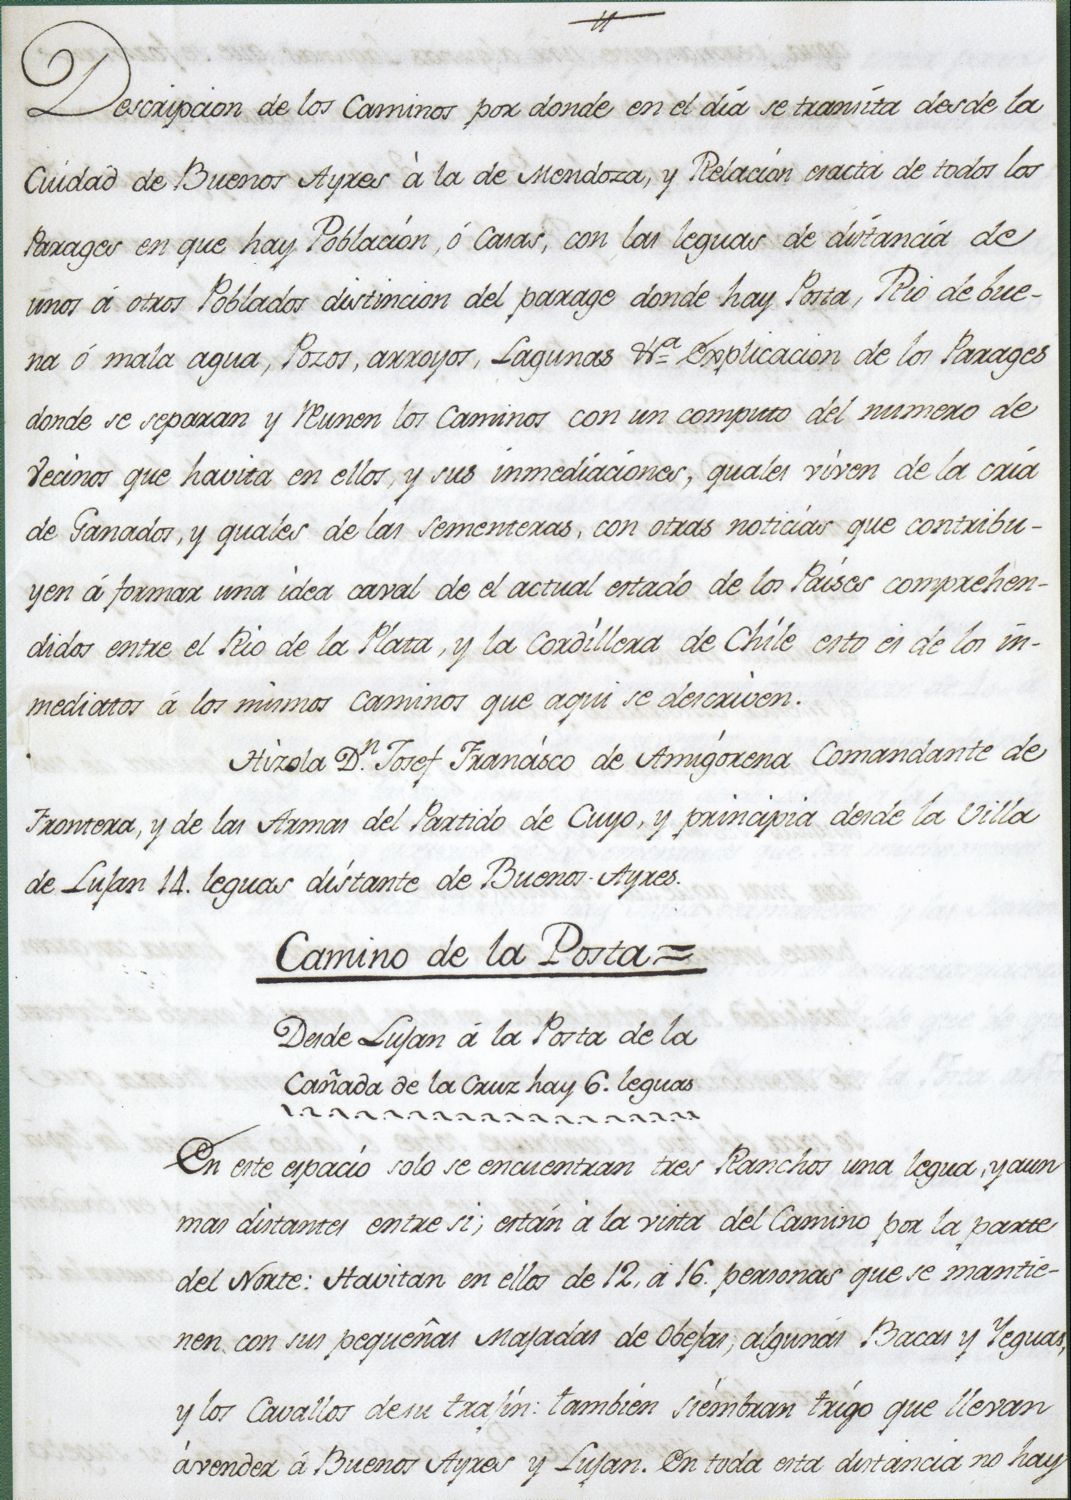 Descripcion de los Caminos por donde en el día se transita desde la
Ciudad de Buenos Ayres à la de Mendoza, y Relación exacta de todos los
Parages en que hay Población, ó Casas, con las leguas de distancia de
unos á otros Poblados distincion del parage donde hay Posta, Rio de bue-
na ó mala agua, Pozos, arroyos, Lagunas &ª Explicacion de los Parages
donde se separan y reunen los Caminos con un computo del numero de
Vecinos que havita en ellos, y sus inmediaciones, quales viven de la cría
de Ganados, y quales de las Sementeras, con otras noticias que contribu-
yen á formar una idea caval de el actual estado de los Países comprehen-
didos entre el Rio de la Plata, y la Cordillera de Chile esto es de los in-
mediatos á los mismos Caminos que aqui se descriven.
Hizola Dⁿ. Josef Francisco de Amigorena Comandante de
Frontera, y de las Armas del Partido de Cuyo, y principia desde la Villa
de Lujan 14. leguas distante de Buenos-Ayres.
Camino de la Posta=
Desde Lujan á la Posta de la
Cañada de la Cruz hay 6. leguas
En este espacio solo se encuentran tres Ranchos una legua, y aun
mas distantes entre si; están à la vista del Camino por la parte
del Norte: Havitan en ellos de 12, á 16. personas que se mantie-
nen con sus pequeñas Majadas de Obejas, algunas Bacas y Yeguas,
y los Cavallos de su trajín: también siémbran trigo que llevan
á vender á Buenos Ayres y Lujan. En toda esta distancia no hay